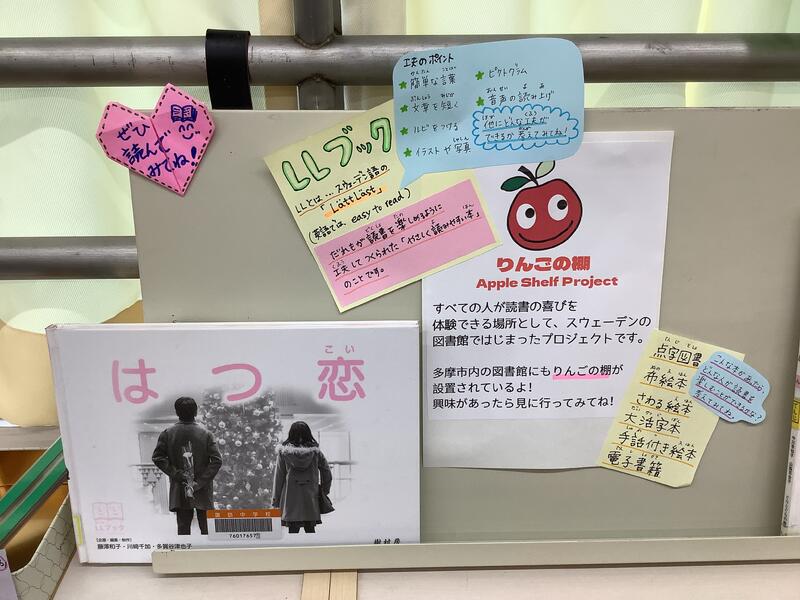 ぜひ
読んで
みてね!
LLブック
LLとは…スウェーデン語の
「Lättläst」
(英語では、easy to read)
だれもが読書を楽しめるように
工夫してつくられた「やさしく読みやすい本」
のことです。
工夫のポイント
★簡単な言葉
★文章を短く
★ルビをつける
★イラストや写真
★ピクトグラム
★音声の読み上げ
他にどんな工夫が
できるか考えてみてね!
りんごの棚
Apple Shelf Project
すべての人が読書の喜びを
体験できる場所として、スウェーデンの
図書館ではじまったプロジェクトです。
多摩市内の図書館にもりんごの棚が
設置されているよ!
興味があったら見に行ってみてね!
点字図書
布絵本
さわる絵本
大活字本
手話付き絵本
電子書籍
こんな本があれば
どんな人が読書を
考えてみてね。
はつ恋
こい
LLブック
[企画・編集・制作]
藤澤和子・川﨑千加・多賀谷津也子
樹村房
諏訪中学校
76017657